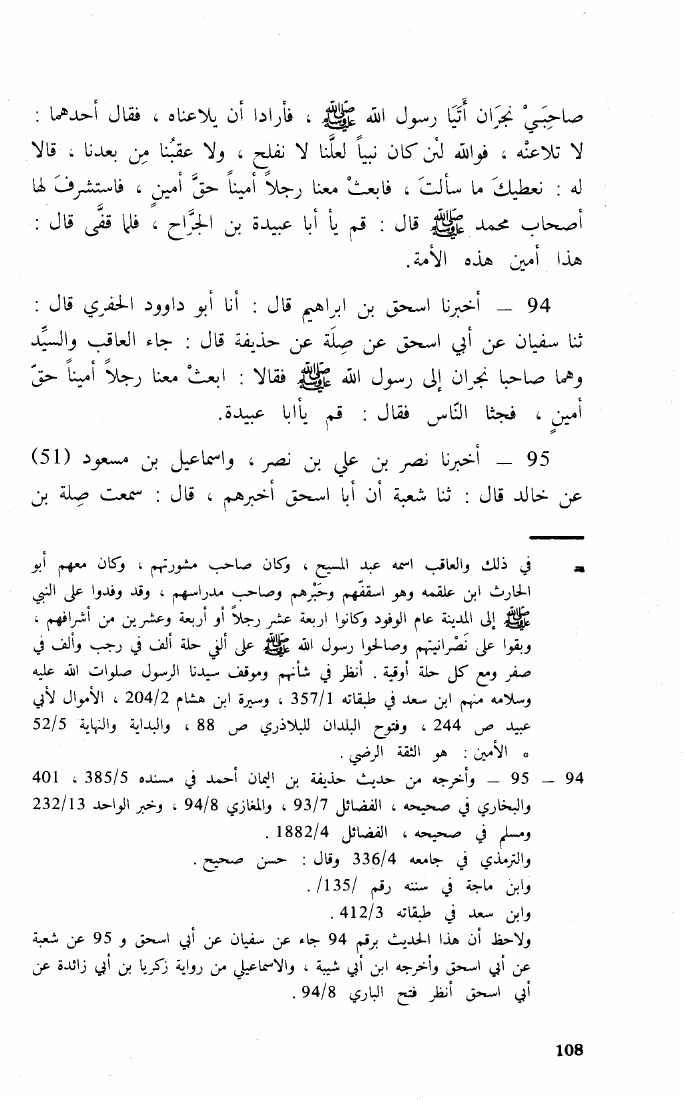 صاحِبَيْ نَجْرَان أَتَيَا رسول الله ﷺ ، فأرادا أن يلاعناه ، فقال أحدهما :
لا تلاعنْه ، فوالله لئن كان نبياً لعلَّنا لا نفلح ، ولا عقبُنا مِن بعدنا ، قالا
له : نعطيكَ ما سألتَ ، فابعثْ معنا رجلاً أميناً حقَّ أمينٍ ، فاستشرفَ لها
أصحاب محمد ﷺ قال : قم يأ أبا عبيدة بن الجَرَّاح ، فلما قفَّى قال :
هذا أمين هذه الأمة.
94 — أخبرنا اسحق بن ابراهيم قال : أنا أبو داوود الحفري قال :
ثنا سفيان عن أبي اسحق عن صِلَة عن حذيفة قال : جاء العاقب والسيِّد
وهما صاحبا نجران إلى رسول الله ﷺ فقالا : ابعثْ معنا رجلاً أميناً حقّ
أمينٍ ، فجثا النّاس فقال : قم يأابا عبيدة.
95 — أخبرنا نصر بن علي بن نصر ، واسماعيل بن مسعود (51)
عن خالد قال : ثنا شعبة أن أبا اسحق أخبرهم ، قال : سمعت صِلة بن
في ذلك والعاقب اسمه عبد المسيح ، وكان صاحب مشورتهم ، وكان معهم أبو
الحارث ابن علقمه وهو اسقفّهم وحَبْرهم وصاحب مدراسهم ، وقد وفدوا على النبي
ﷺ إلى المدينة عام الوفود وكانوا اربعة عشر رجلاً أو أربعة وعشرين من أشرافهم ،
وبقوا على نَصْرانيتهم وصالحوا رسول الله ﷺ على ألفي حلة ألف في رجب وألف في
صفر ومع كل حلة أوقية . أنظر في شأنهم وموقف سيدنا الرسول صلوات الله عليه
وسلامه منهم ابن سعد في طبقاته 357/1 ، وسيرة ابن هشام 204/2 ، الأموال لأبي
عبيد ص 244 ، وفتوح البلدان للبلاذري ص 88 ، والبداية والنهاية 52/5
ه الأمين : هو الثقة الرضي .
94 — 95 — وأخرجه من حديث حذيفة بن اليمان أحمد في مسنده 385/5 ، 401
والبخاري في صحيحه ، الفضائل 93/7 ، والمغازي 94/8 ، وخبر الواحد 232/13
ومسلم في صحيحه ، الفضائل 1882/4 .
والترمذي في جامعه 336/4 وقال : حسن صحيح .
وابن ماجة في سننه رقم /135/ .
وابن سعد في طبقاته 412/3 .
ولاحظ أن هذا الحديث برقم 94 جاء عن سفيان عن أبي اسحق و 95 عن شعبة
عن أبي اسحق وأخرجه ابن أبي شيبة ، والاسماعيلي من رواية زكريا بن أبي زائدة عن
أبي اسحق أنظر فتح الباري 94/8 .
108